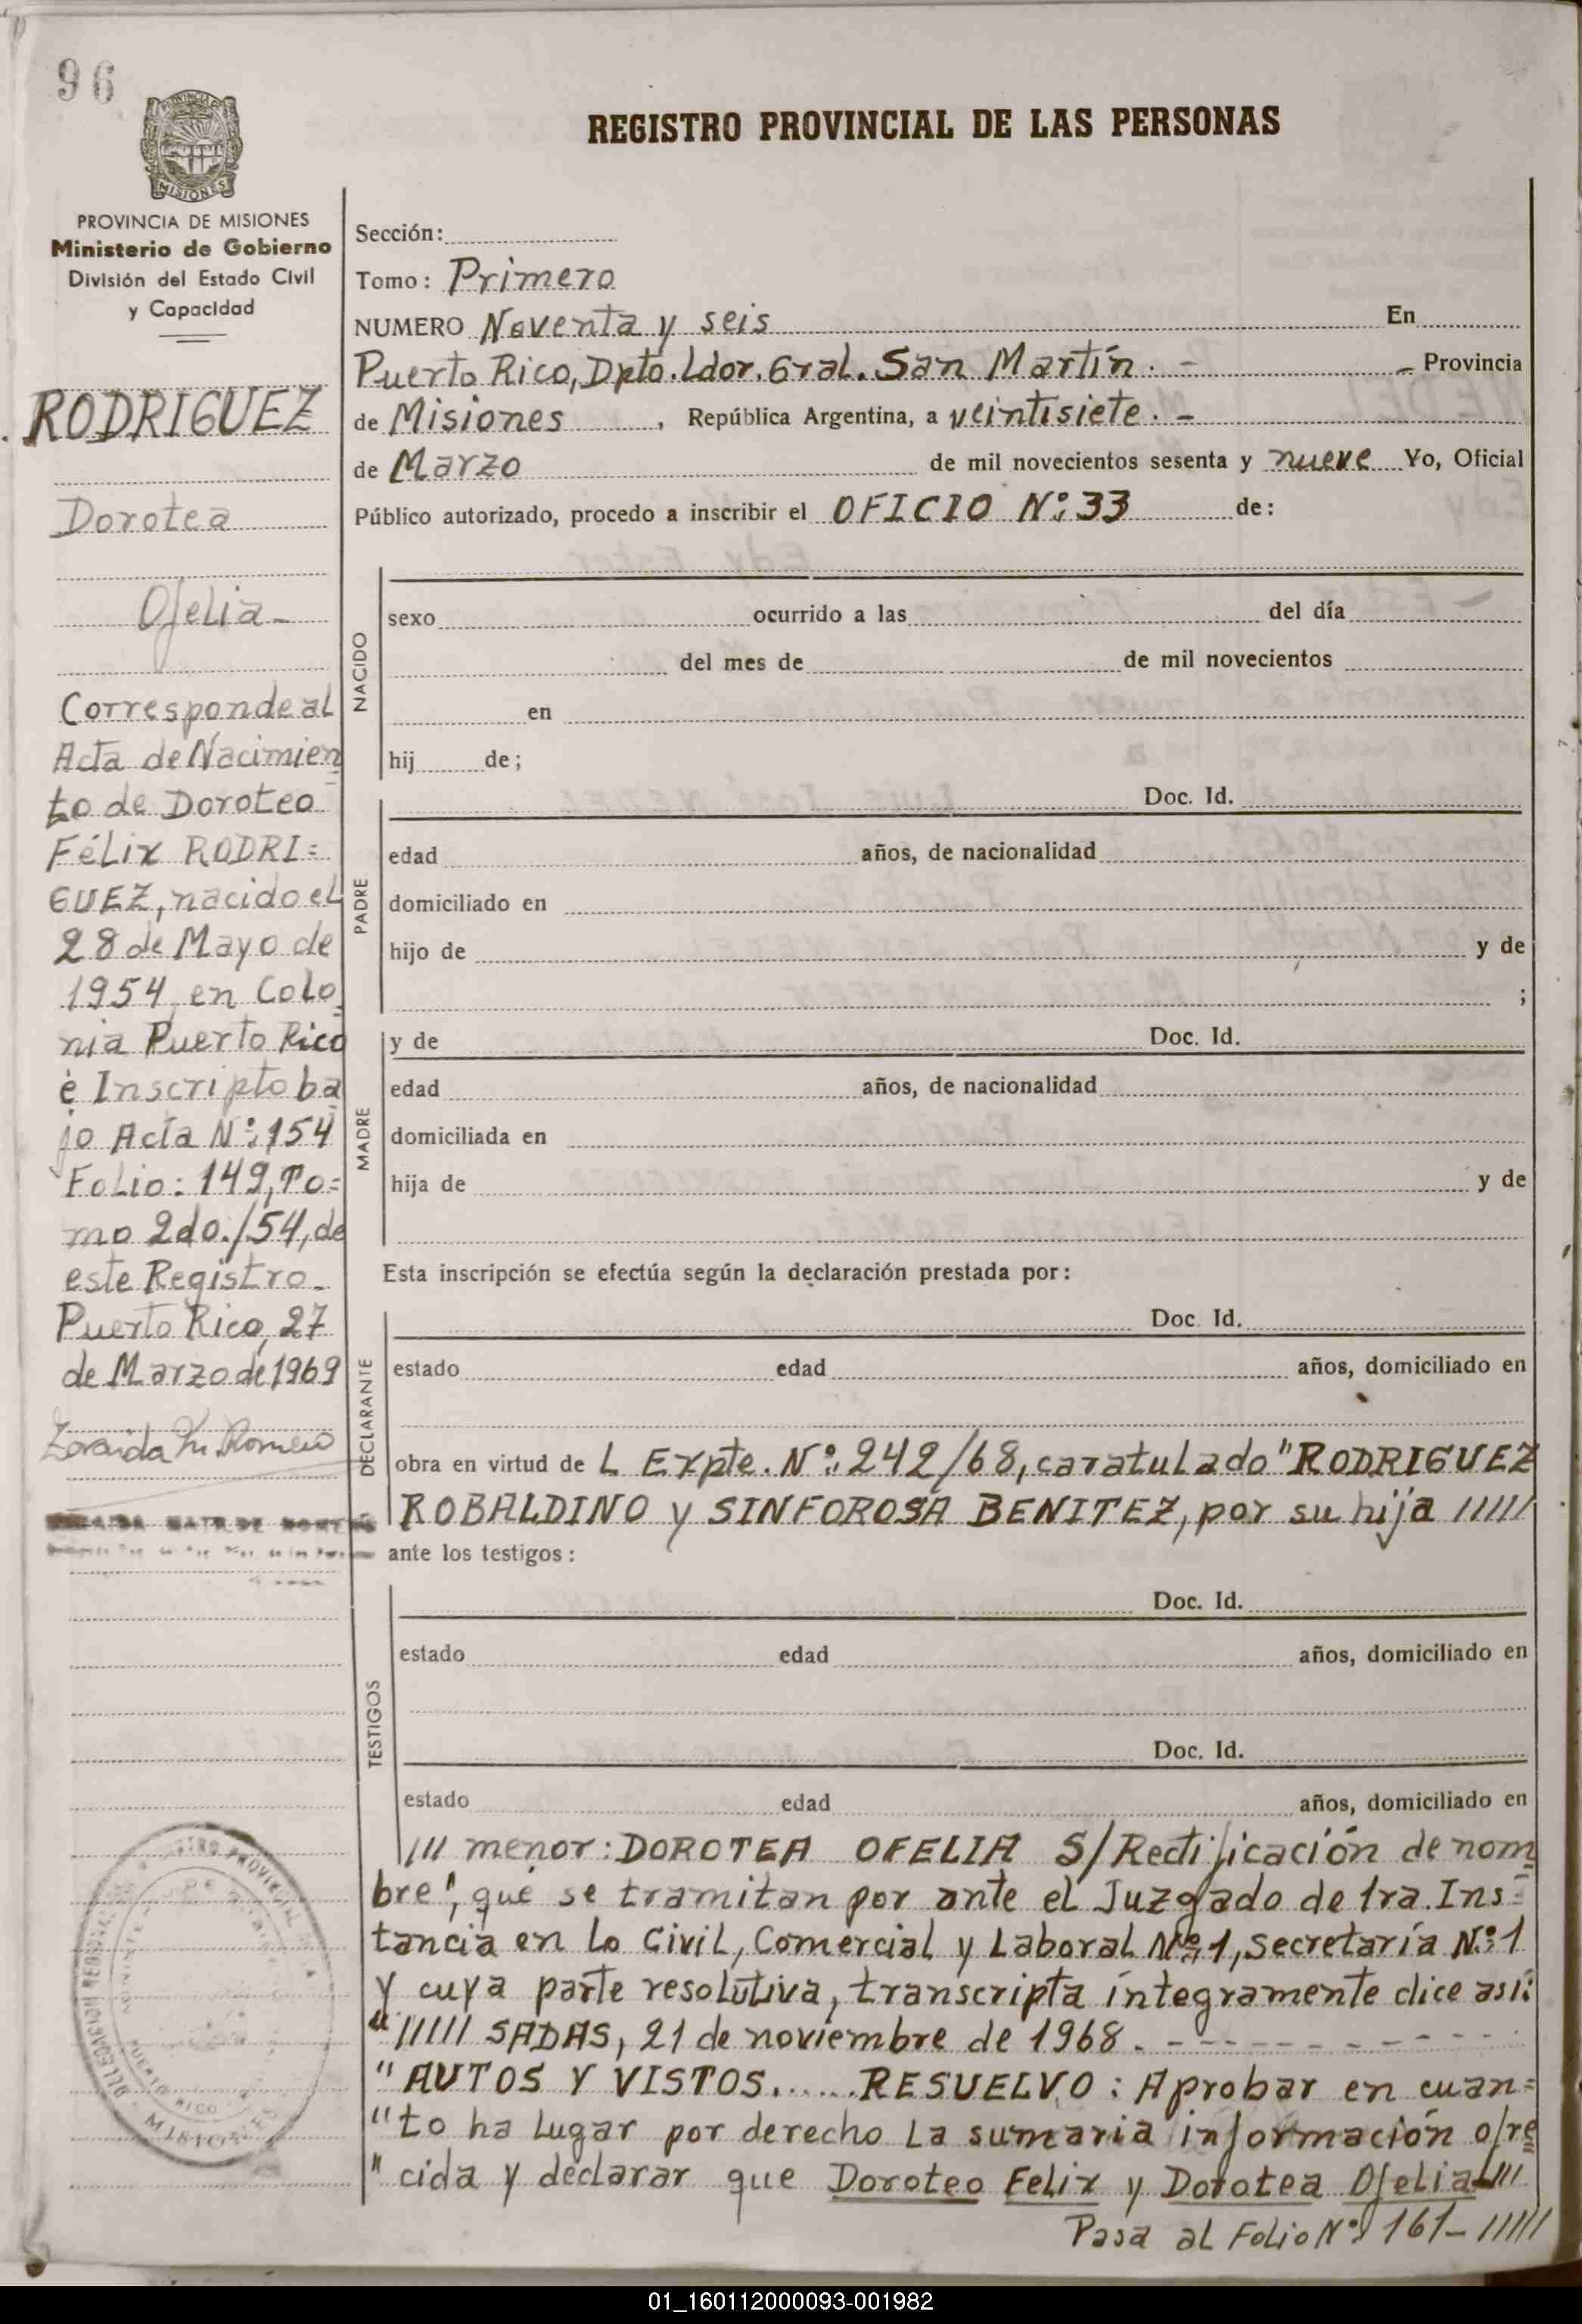 96
PROVINCIA DE MISIONES
Ministerio de Gobierno
División del Estado Civil
y Capacidad
RODRIGUEZ
Dorotea
Ofelia-
Corresponde al
Acta de Nacimien
to de Doroteo
Félix RODRI=
GUEZ, nacido el
28 de Mayo de
1954 en Colo
nia Puerto Rico
è Inscripto ba
jo Acta Nº: 154
Folio: 149, To=
mo 2do./54, de
este Registro-
Puerto Rico, 27
de Marzo de 1969
Zoraida M. Romero
PUERTO RICO
MISIONES
REGISTRO PROVINCIAL DE LAS PERSONAS
Sección:
Tomo: Primero
NUMERO Noventa y seis En
Puerto Rico, Dpto. Ldor. Gral. San Martín. - - Provincia
de Misiones, República Argentina, a veintisiete. -
de Marzo de mil novecientos sesenta y nueve Yo, Oficial
Público autorizado, procedo a inscribir el OFICIO Nº: 33 de:
NACIDO
sexo ocurrido a las del día
del mes de de mil novecientos
en
hij de;
PADRE
Doc. Id.
edad años, de nacionalidad
domiciliado en
hijo de y de
;
MADRE
y de Doc. Id.
edad años, de nacionalidad
domiciliada en
hija de y de
Esta inscripción se efectúa según la declaración prestada por:
DECLARANTE
Doc. Id.
estado edad años, domiciliado en
obra en virtud de L Expte. Nº: 242/68, caratulado "RODRIGUEZ
ROBALDINO y SINFOROSA BENITEZ, por su hija /////
ante los testigos:
TESTIGOS
Doc. Id.
estado edad años, domiciliado en
Doc. Id.
estado edad años, domiciliado en
/// menor: DOROTEA OFELIA S/Rectificación de nom
bre", que se tramitan por ante el Juzgado de 1ra. Ins=
tancia en Lo Civil, Comercial y Laboral Nº: 1, Secretaría Nº: 1
y cuya parte resolutiva, transcripta íntegramente dice asi:
" ///// SADAS, 21 de noviembre de 1968. - - - - - - - - - -
" AUTOS Y VISTOS......RESUELVO: Aprobar en cuan=
" to ha lugar por derecho La sumaria información ofre
" cida y declarar que Doroteo Felix y Dorotea Ofelia ///
Pasa al Folio Nº: 161- /////
01_160112000093-001982